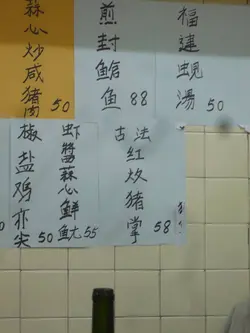 蒜心炒咸猪肉 50
煎封鲳鱼 88
福建蚬湯 50
椒盐鸡亦尖 50
虾醬蒜心鲜魷 55
古法红炆猪掌 58